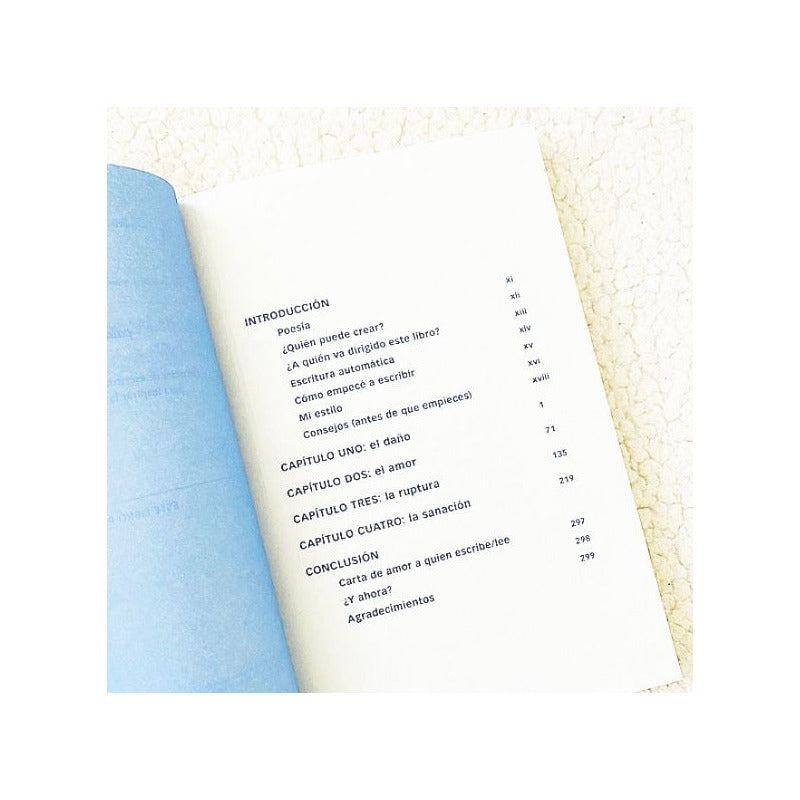 INTRODUCCIÓN
Poesía xi
¿Quién puede crear? xii
¿A quién va dirigido este libro? xiii
Escritura automática xiv
Cómo empecé a escribir xv
Mi estilo xvi
Consejos (antes de que empieces) xviii
CAPÍTULO UNO: el daño 1
CAPÍTULO DOS: el amor 71
CAPÍTULO TRES: la ruptura 135
CAPÍTULO CUATRO: la sanación 219
CONCLUSIÓN
Carta de amor a quien escribe/lee 297
¿Y ahora? 298
Agradecimientos 299